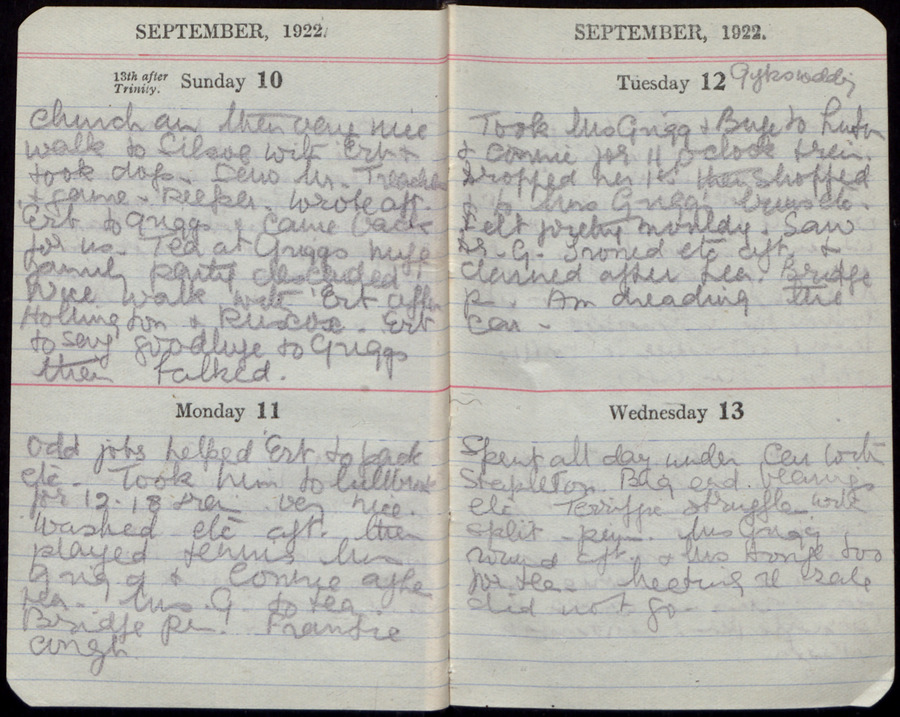 SEPTEMBER, 1922.
13th after Trinity. Sunday 10
Church am then very nice
walk to Silsoe with Ert &
took dogs. Saw Mr.
& Game-Keeper. Wrote aft.
Ert to Griggs & came back
for us. Tea at Griggs huge
family party
Nice walk with Ert after
& . Ert
to say goodbye to Griggs
then talked.
Monday 11
Odd jobs helped Ert to pack
etc. Took him to
for 12.18 train. Very nice.
Washed etc aft. then
played tennis Mrs
Grigg & Connie after
tea. Mrs. G to tea.
Bridge pm! Frantic
cough
SEPTEMBER, 1922.
Tuesday 12
Took Mrs Grigg & to Luton
& Connie for 11 o'clock train.
Dropped her 1st then shopped
Mrs Grigg
Felt pretty mouldy. Saw
Dr. G. Ironed etc aft. &
cleaned after tea. Bridge
p. Am dreading the
car -
Wednesday 13
Spent all day under Car with
Stapleton. Big end bearings
etc Terrific struggle with
split - pin. Mrs Grigg
round aft. & Mrs too
for tea. Meeting re sale
did not go -